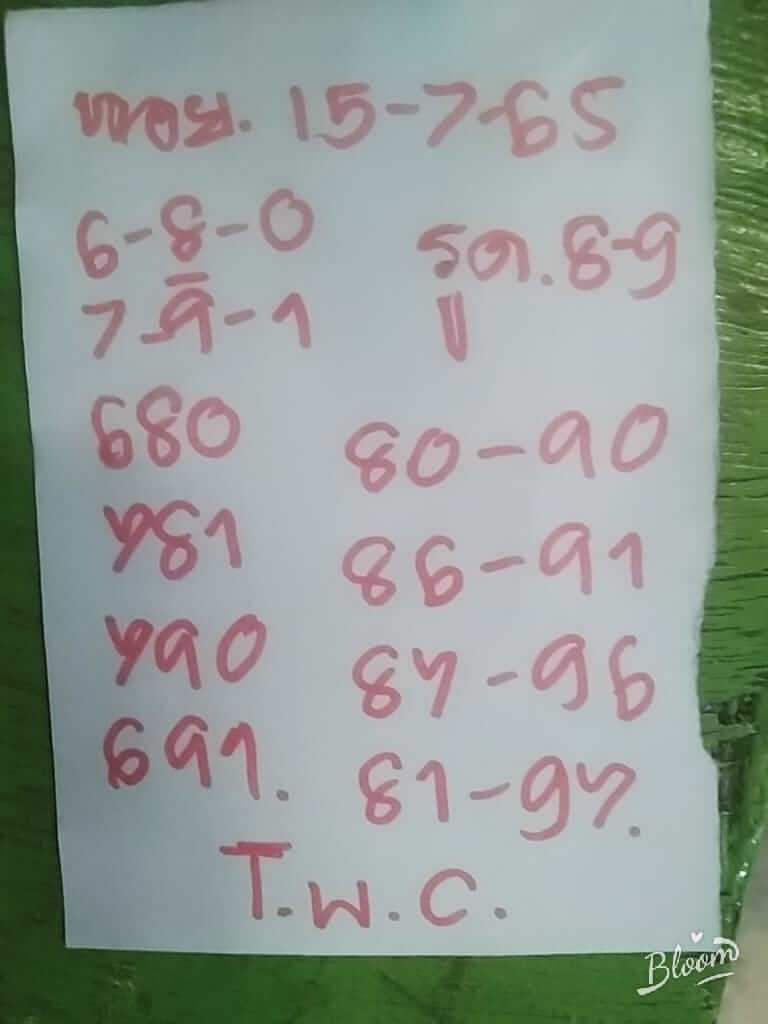 หวอย. 15-7-65
6-8-0
7-9-1
รูด. 8-9
บ
680
781
790
691.
80-90
86-91
87-96
81-97.
T.W.C.
Bloom